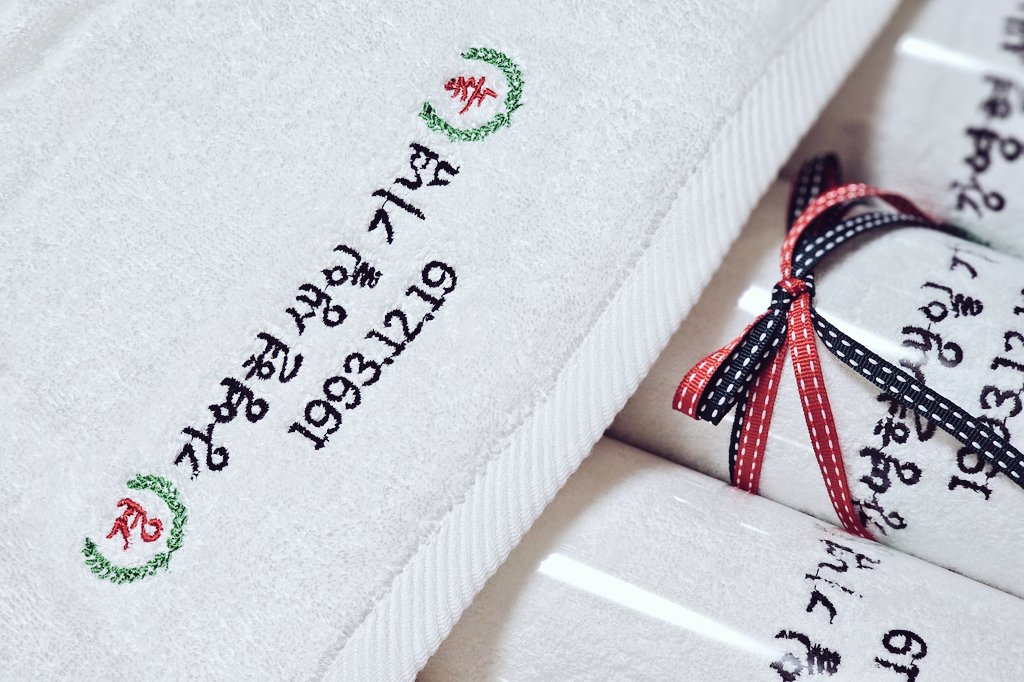 경 강영현 생일 기념 축
1993.12.19
강영현
강영현 생일
1993.12
일 기념
19